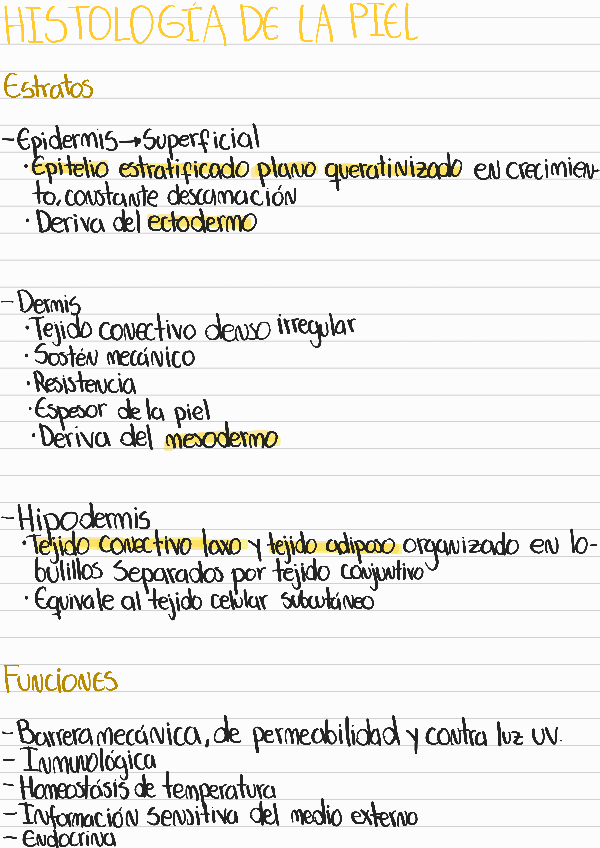 HISTOLOGÍA DE LA PIEL
Estratos
-Epidermis→Superficial
·Epitelio estratificado plano queratinizado en crecimien-
to, constante descamación
·Deriva del ectodermo
-Dermis
·Tejido conectivo denso irregular
·Sostén mecánico
·Resistencia
·Espesor de la piel
·Deriva del mesodermo
-Hipodermis
·Tejido conectivo laxo y tejido adiposo organizado en lo-
bulillos separados por tejido conjuntivo
·Equivale al tejido celular subcutáneo
Funciones
-Barrera mecánica, de permeabilidad y contra luz UV.
-Inmunológica
-Homeostásis de temperatura
-Información sensitiva del medio externo
-Endocrina